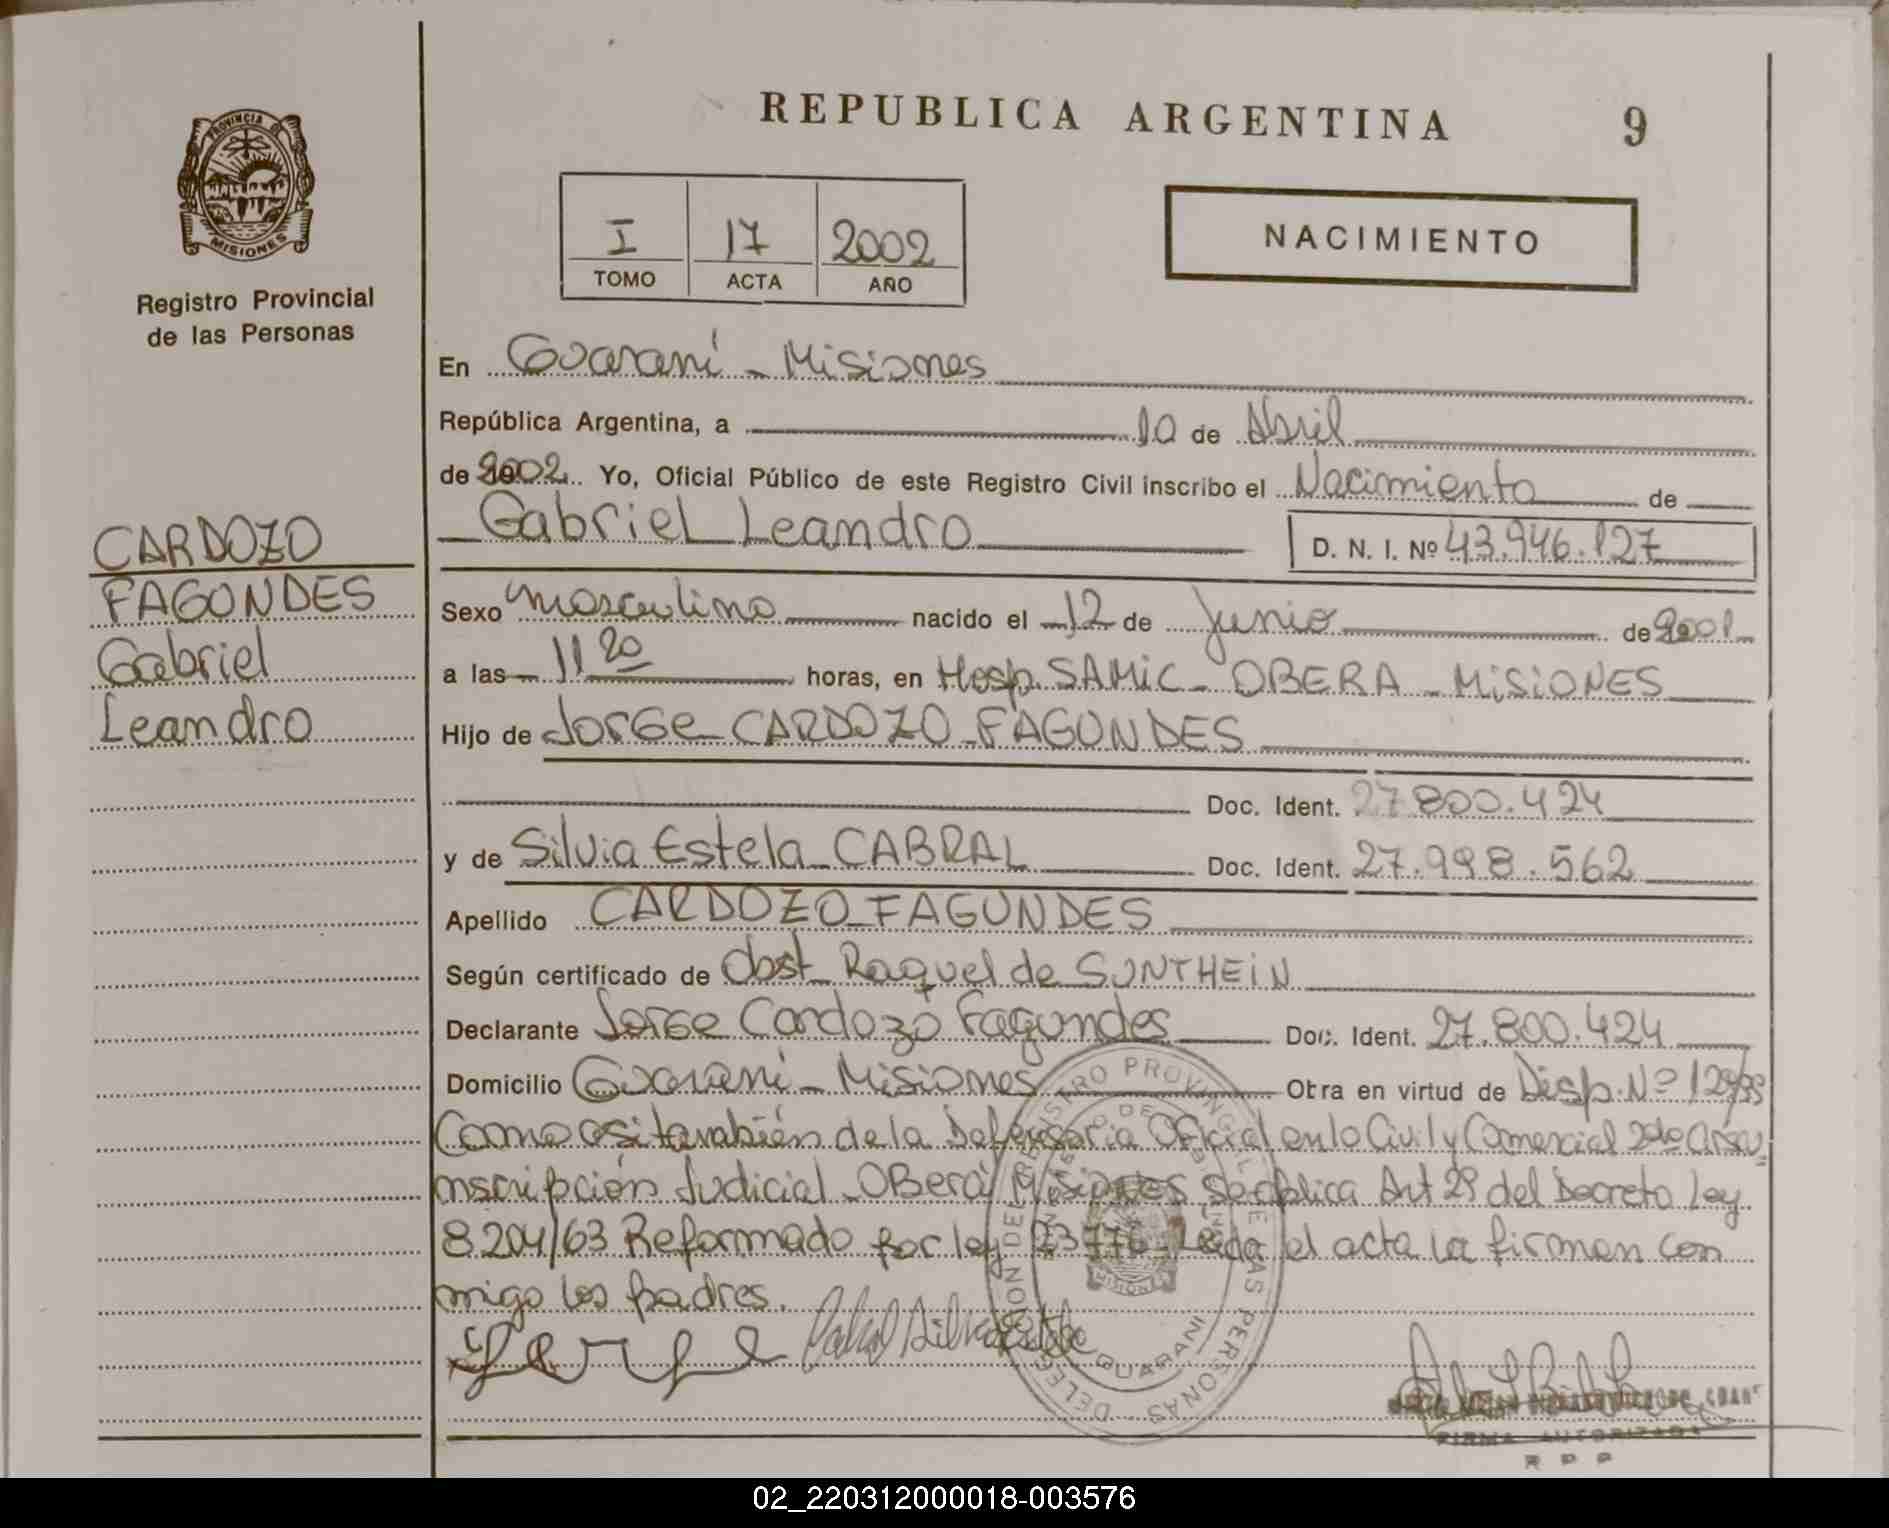 REPUBLICA ARGENTINA
9
PROVINCIA DE
MISIONES
Registro Provincial
de las Personas
I 17 2002
TOMO ACTA AÑO
NACIMIENTO
En Guaraní - Misiones
República Argentina, a 10 de Abril
de 2002 Yo, Oficial Público de este Registro Civil inscribo el Nacimiento de
Gabriel Leandro D. N. I. Nº 43.946.127
CARDOZO
FAGONDES
Gabriel
Leandro
Sexo masculino nacido el 12 de Junio de 2001
a las 11 20 horas, en Hosp. SAMIC - OBERA - MISIONES
Hijo de Jorge CARDOZO FAGUNDES
Doc. Ident. 27.800.424
y de Silvia Estela CABRAL Doc. Ident. 27.998.562
Apellido CARDOZO FAGUNDES
Según certificado de Obst. Raquel de SUNTHEIN
Declarante Jorge Cardozo Fagundes Doc. Ident. 27.800.424
Domicilio Guaraní - Misiones Otra en virtud de Disp. Nº
Como asi también de la Defensoria Oficial en lo Civil y Comercial 2da
Judicial - OBerá Misiones Se aplica Art 29 del Decreto Ley
8.204/63 Reformado por ley 23776 - Leida el acta la firman con
migo los padres.
Jorge
DELEGACION DEL REGISTRO PROVINCIAL DE LAS PERSONAS
GUARANI
MISIONES
FIRMA AUTORIZADA
R P P
02_220312000018-003576